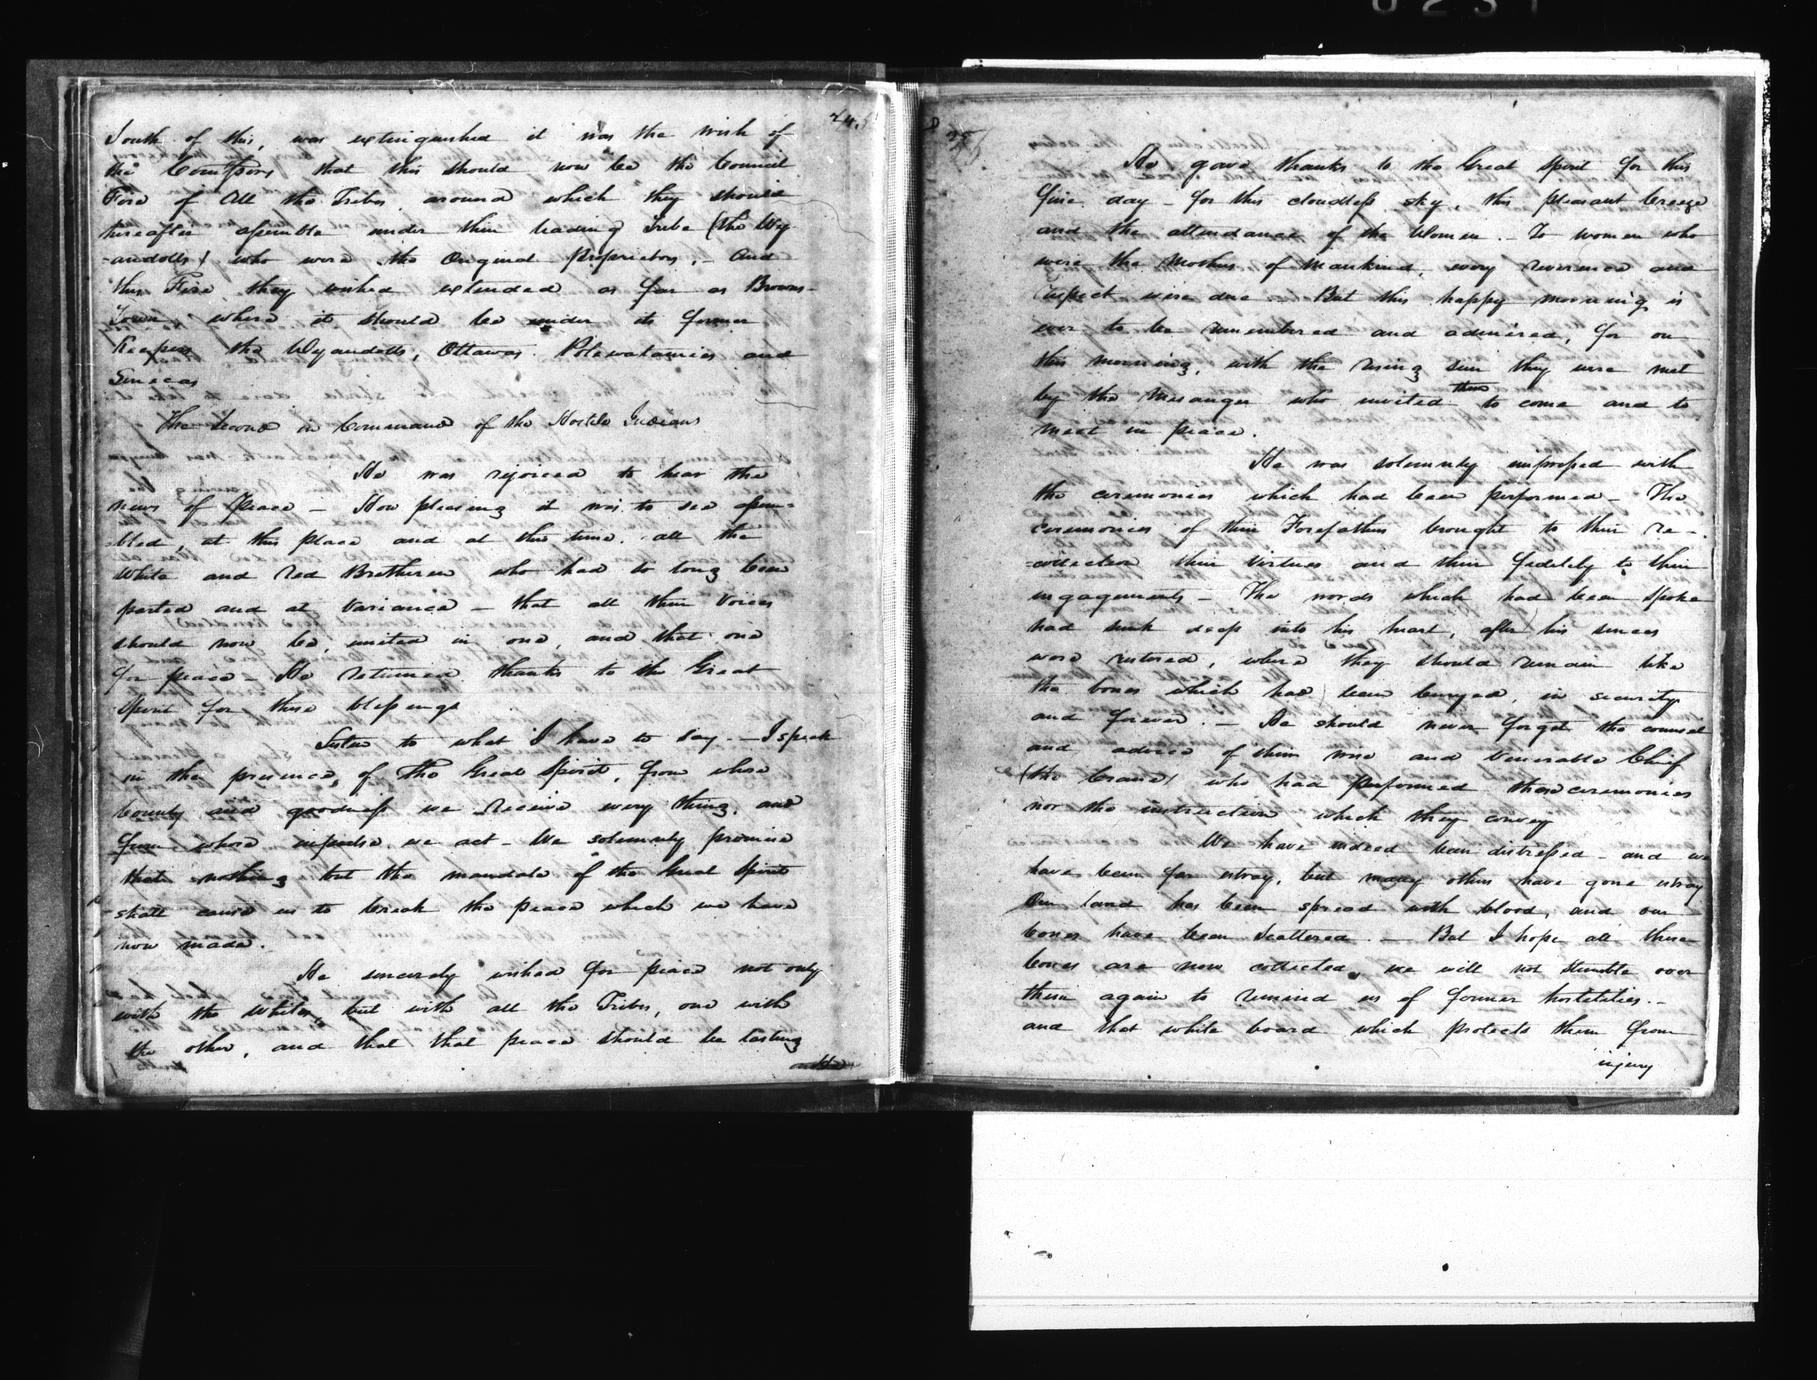 24.
South of this, was extinguished it was the wish of
the Comissrs that this should now be the Council
Fire of All the Tribes around which they should
hereafter assemble under their leading Tribe (the Wy-
-andotts) who were the Original Proprietors. - And
this Fire they wished extended as far as Browns-
Town where it should be under its former
Keepers the Wyandotts, Ottawas. Potewatamies and
Senecas
The Second in Command of the Hostile Indians
He was rejoiced to hear the
news of Peace - How pleasing it was to see assem-
-bled, at this place and at this time. all the
White and red Bretheren who had so long been
parted and at Variance - that all their Voices
should now be, united in one, and that one
for peace - He returned thanks to the Great
Spirit for these blessings
Listen to what I have to say. - I speak
in the presence, of The Great Spirit, from whose
bounty and goodness we receive every thing, and
from whose impulse we act - We solemnly promise
that nothing but the mandate of the Great Spirit
shall cause us to break the peace which we have
now made.
He sincerely wished for peace not only
with the Whites, but with all the Tribes, one with
the other, and that that peace should be lasting
25
He gave thanks to the Great Spirit for this
fine day - for this cloudless sky, this pleasant breeze
and the attendance of the Women. - To women who
were the Mothers of Mankind, every reverence and
respect were due - But this happy morning is
ever to be remembered and admired, for on
this morning, with the rising sun they were met
by the Messanger who invited them to come and to
meet in peace.
He was solemnly impressed with
the ceremonies which had been performed - The
ceremonies of their Forefathers brought to their re-
-collection their virtues and their fidelity to their
engagements - The words which had been spoke
had sunk deep into his heart, after his senses
were restored, where they should remain like
the bones which had been burryed, in security
and forever. - He should never forget the counsel
and advice of their wise and Venerable Chief
(the Crane) who had performed these ceremonies
nor the instruction which they convey
We have indeed been distressed - and we
have been far astray, but many others have gone astray
Our land has been spread with blood, and our
bones have been scattered. - But I hope all these
bones are now collected, we will not stumble over
them again to remind us of former hostilities. -
and that white board which protects them from
injury